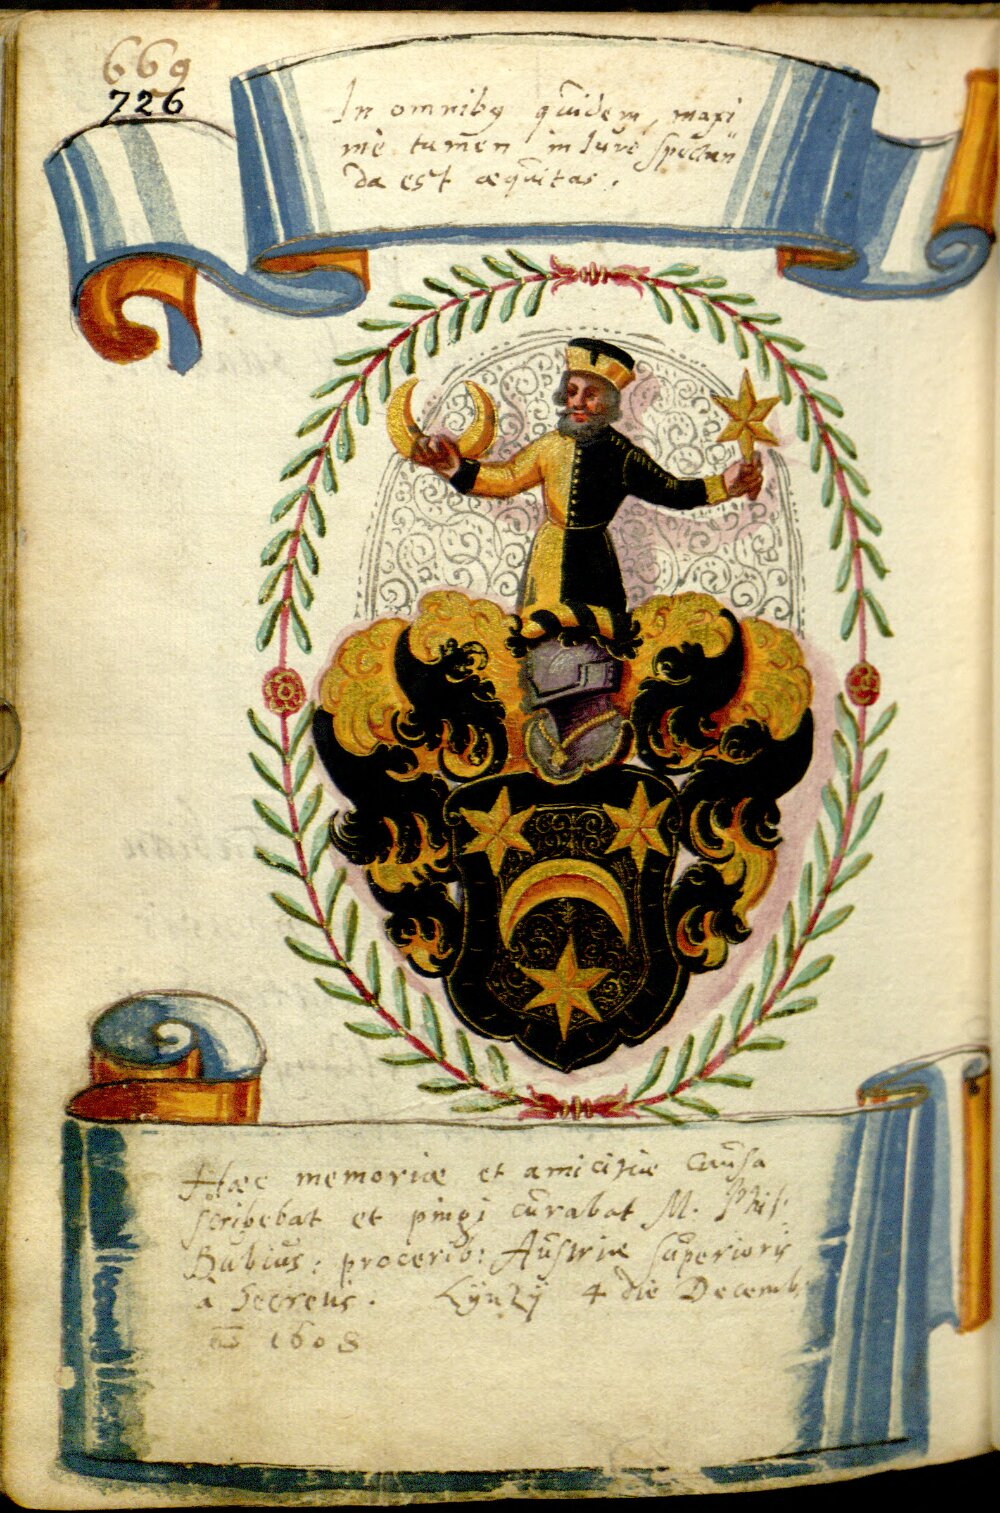 669
726
In omnibꝯ quidem, maxi
mè tamen in Iure spectan
da est æquitas.
Hæc memoriæ et amicitiæ causa
scribebat et pingi curabat M. Phil:
Bubius: procerib: Austriæ superioris
à Secretis. Lÿnzÿ 4 die Decemb:
1608